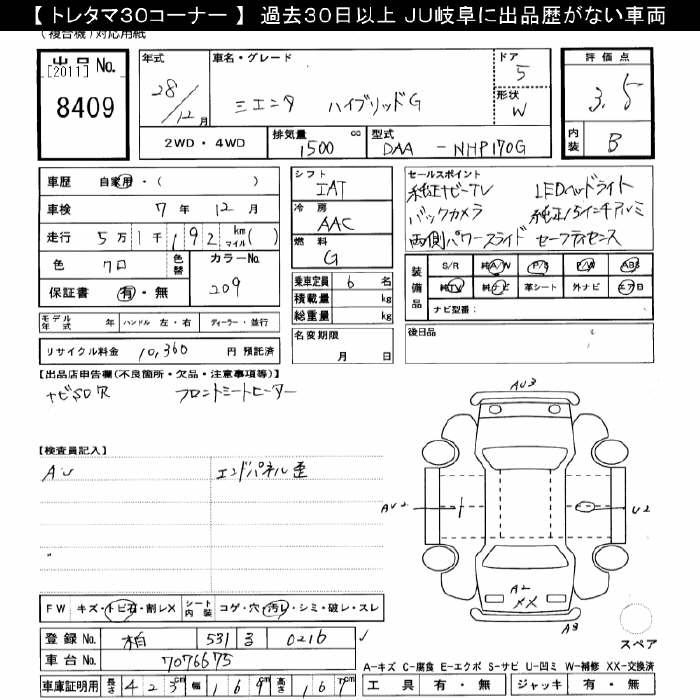 【 トレタマ30コーナー 】 過去30日以上 JU岐阜に出品歴がない車両
(複合機)対応用紙
出品 No.
[2011]
8409
年式
28/12月
車名・グレード
シエンタ ハイブリッドG
ドア
5
形状
W
評価点
3.5
内装
B
2WD・4WD
排気量
1500 cc
型式
DAA - NHP170G
車歴 自家用・( )
車検 7年 12月
走行 5万 1千 192 km マイル( )
色 クロ 色替 カラーNo. 209
保証書 有・無
モデル年式 年 ハンドル 左・右 ディーラー・並行
リサイクル料金 10,360 円 預託済
シフト
IAT
冷房
AAC
燃料
G
乗車定員 6 名
積載量 kg
総重量 kg
名変期限
月 日
セールスポイント
純正ナビ-TV LEDヘッドライト
バックカメラ 純正15インチアルミ
両側パワースライド セーフティセンス
装備品
S/R 純A/W P/S P/W ABS
純TV 純ナビ 革シート 外ナビ エアB
ナビ型番:
後日品
【出品店申告欄(不良箇所・欠品・注意事項等)】
ナビSD欠 フロントシートヒーター
【検査員記入】
AU エンドパネル歪
AU3
AU2
U2
A2
XX
A3
スペア
FW キズ・トビ石・割レX シート内装 コゲ・穴・汚レ・シミ・破レ・スレ
登録 No. 柏 531 る 0216
車台 No. 7076675
車庫証明用 長さ 423cm 幅 169cm 高さ 167cm
A-キズ C-腐食 E-エクボ S-サビ U-凹ミ W-補修 XX-交換済
工具 有・無 ジャッキ 有・無